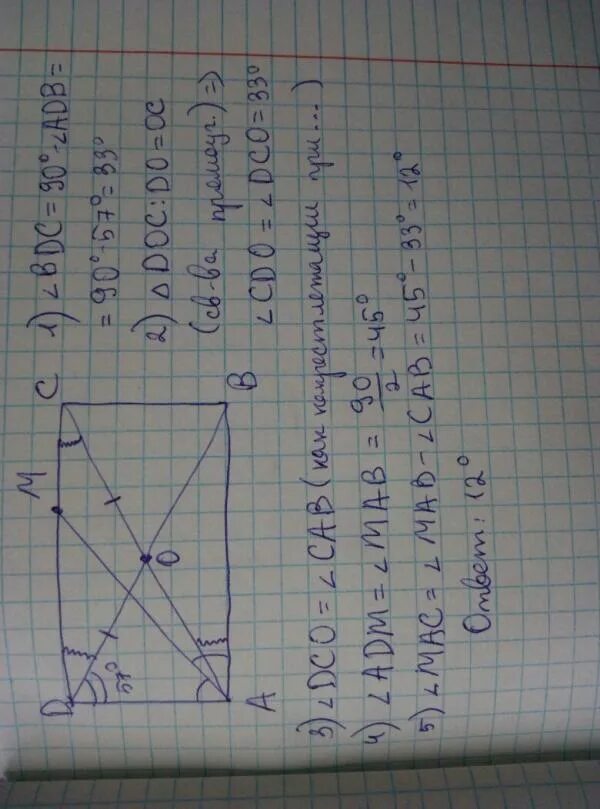 D M C
57°
O
A B
1) ∠BDC = 90° - ∠ADB =
= 90° - 57° = 33°
2) △DOC: DO = OC
(св-ва прямоуг.) ⇒
∠CDO = ∠DCO = 33°
3) ∠DCO = ∠CAB (как накрестлежащие при...)
4) ∠ADM = ∠MAB = 90/2 = 45°
5) ∠MAC = ∠MAB - ∠CAB = 45° - 33° = 12°
Ответ: 12°